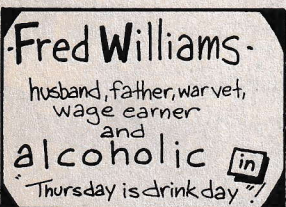 ·Fred Williams·
husband, father, war vet,
wage earner
and
alcoholic in
"Thursday is drink day"!